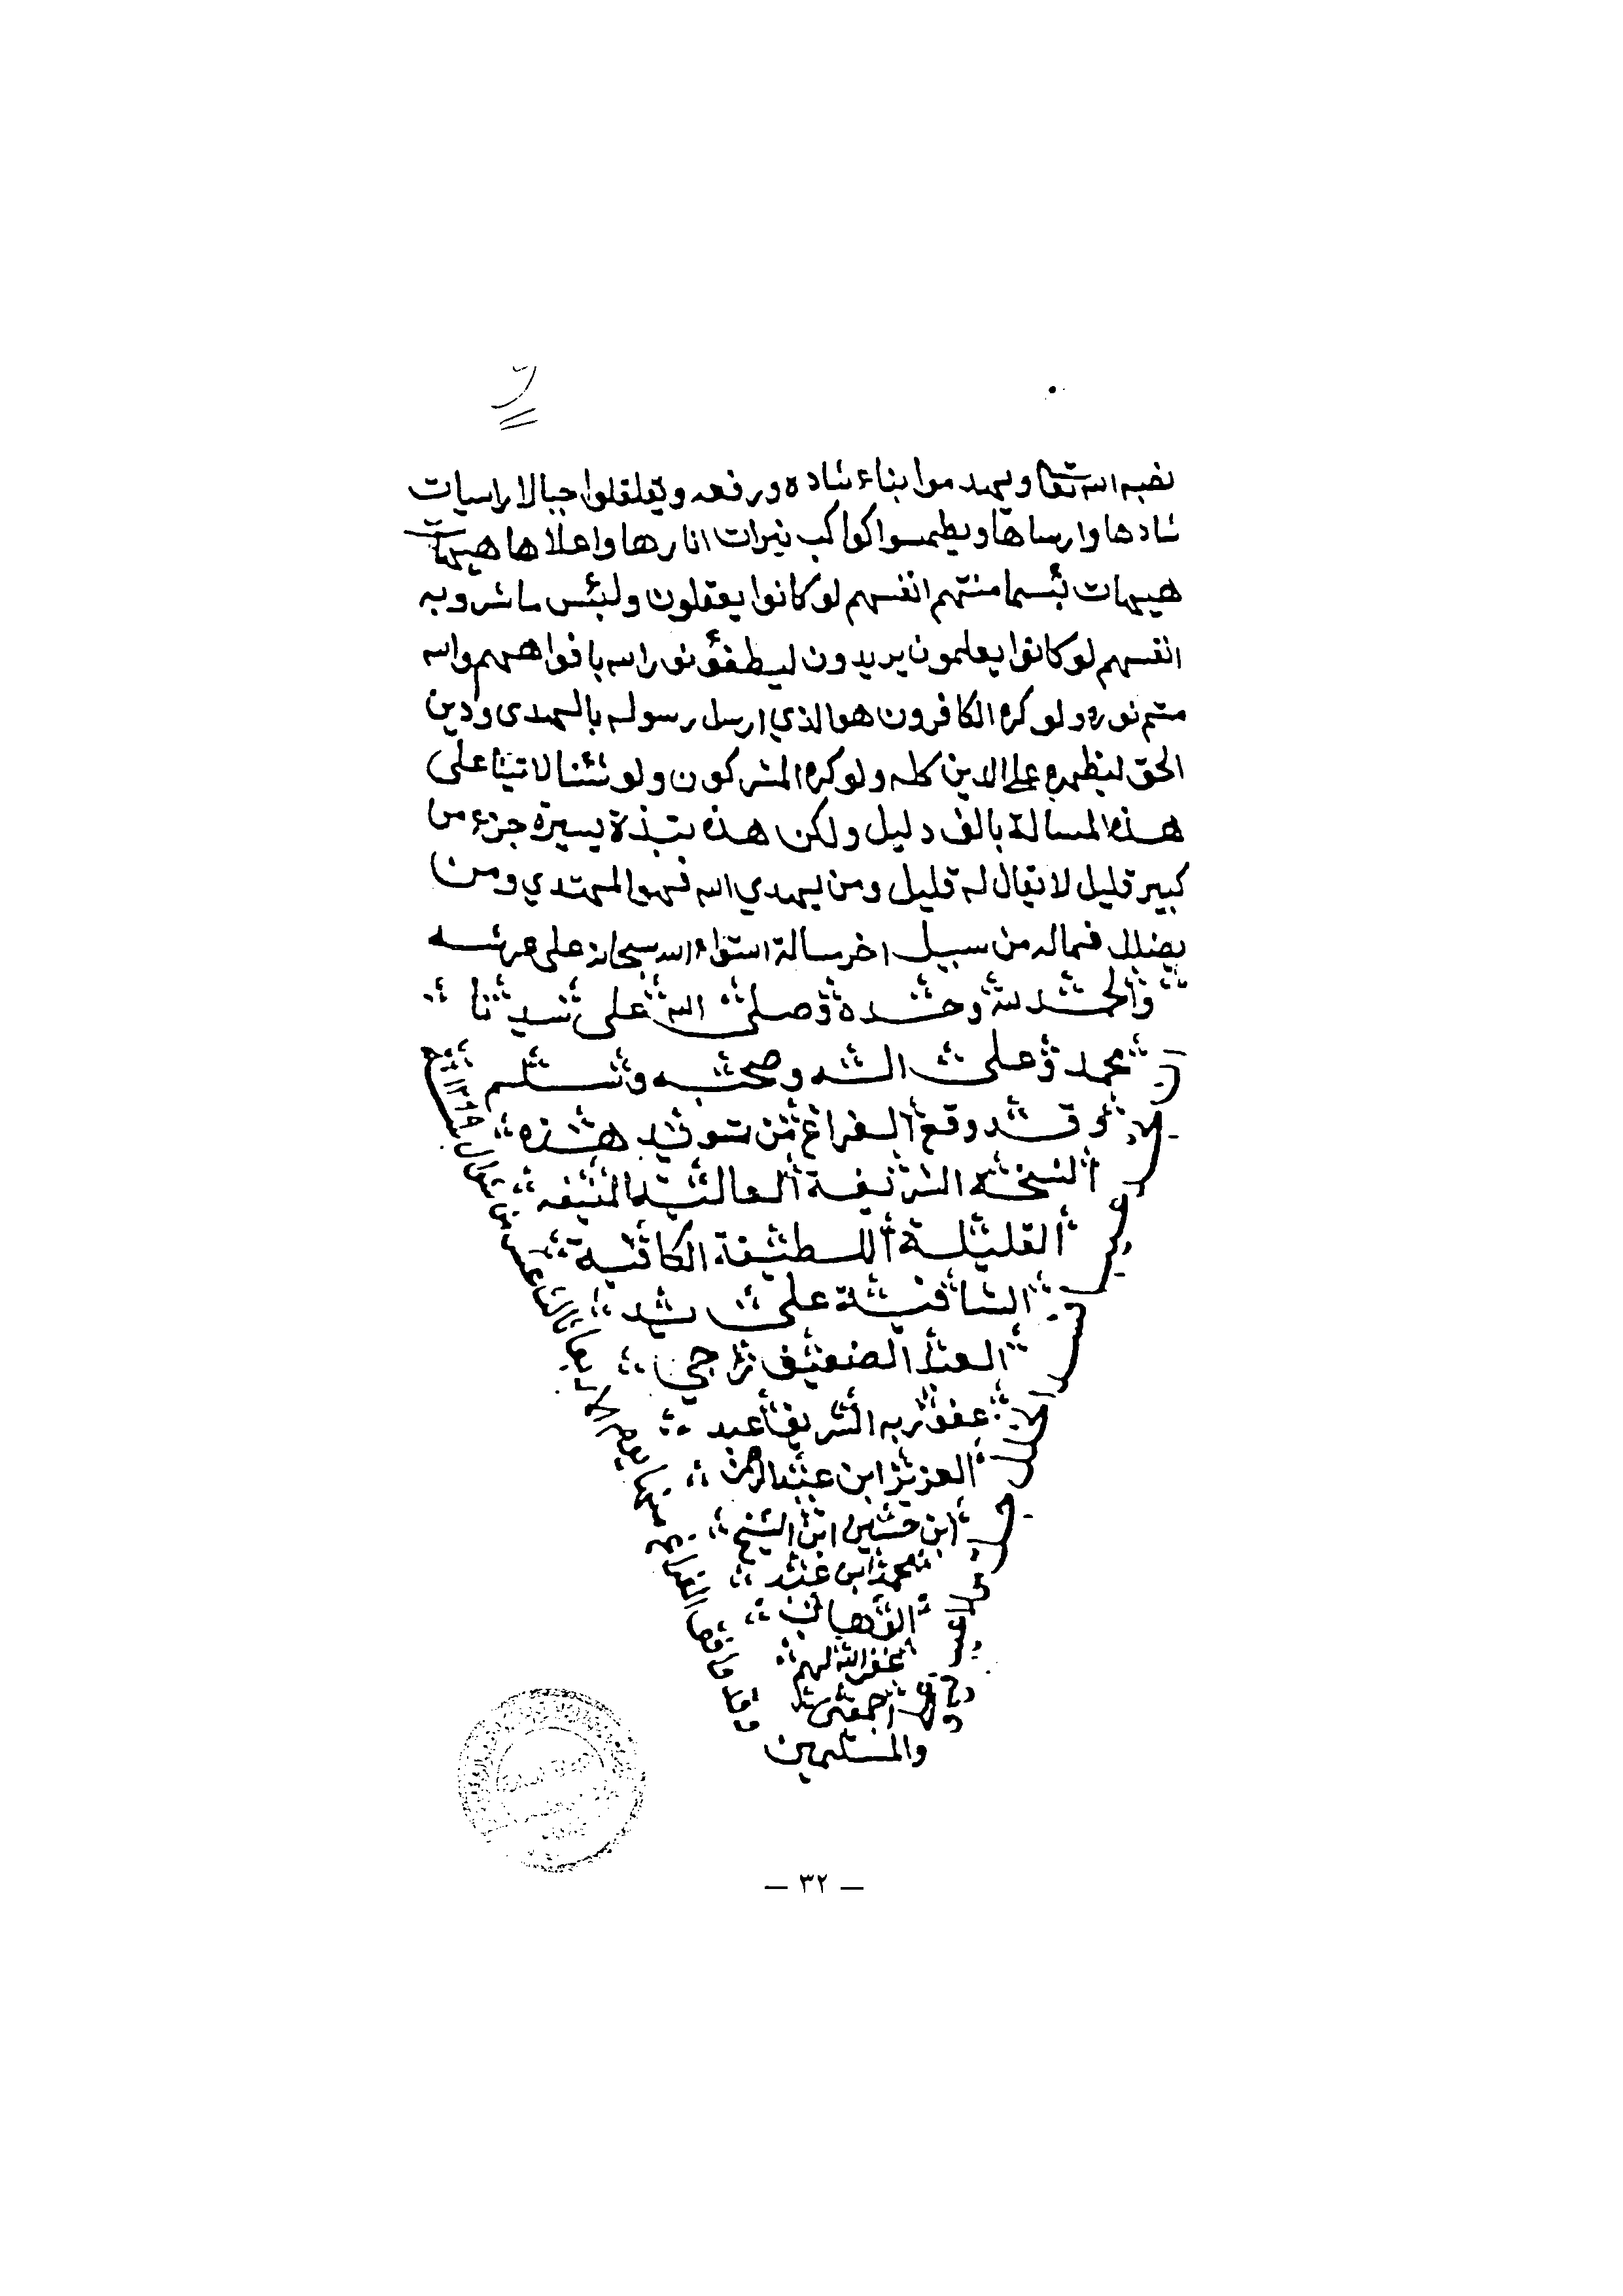 نصبه الله تعا ويهدموا بناء شاده ورفعه ويقلقلوا جبالا راسيات
شادها وارساها ويطمسوا كواكب نيرات انارها واعلاها هيهات
هيهات بئسما منتهم انفسهم لو كانوا يعقلون ولبئس ما شروبه
انفسهم لو كانوا يعلمون يريدون ليطفؤ نور الله بافواههم والله
متم نوره ولو كره الكافرون هو الذي ارسل رسوله بالهدى ودين
الحق ليظهره على الدين كله ولو كره المشركون ولو شئنا لاتينا على
هذه المسالة بالف دليل ولكن هذه نبذة يسيرة جزء من
كبير قليل لا يقال له قليل ومن يهدي الله فهو المهتدي ومن
يضلل فماله من سبيل اخر سالة استواء الله سبحانه على عرشه
والحمد لله وحده وصلى الله على سيدنا
محمد وعلى اله وصحبه وسلم
وقد وقع الفراغ من تسويد هذه
النسخة الشريفة العالية المنيفه
القليلة اللطيفة الكافية
الشافية على يد
العبد الضعيف راجي
عفو ربه الشريف عبد
العزيز ابن عبد الرحمن
ابن حسين ابن الشيخ
محمد ابن عبد
الوهاب
غفر الله لهم
اجمعين
والمسلمين
— ٣٢ —